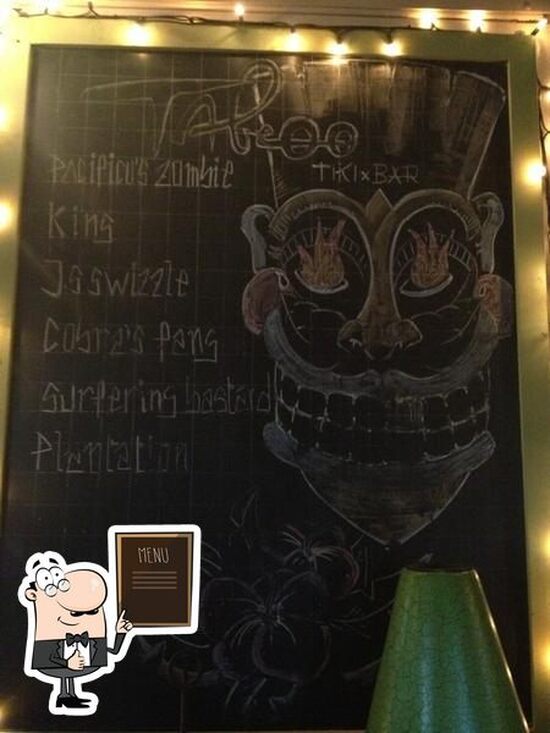 Taboo
TIKI x BAR
Pacifico's zombie
King
Jaswizzle
Cobra's fang
Surfering bastard
Plantation
MENU